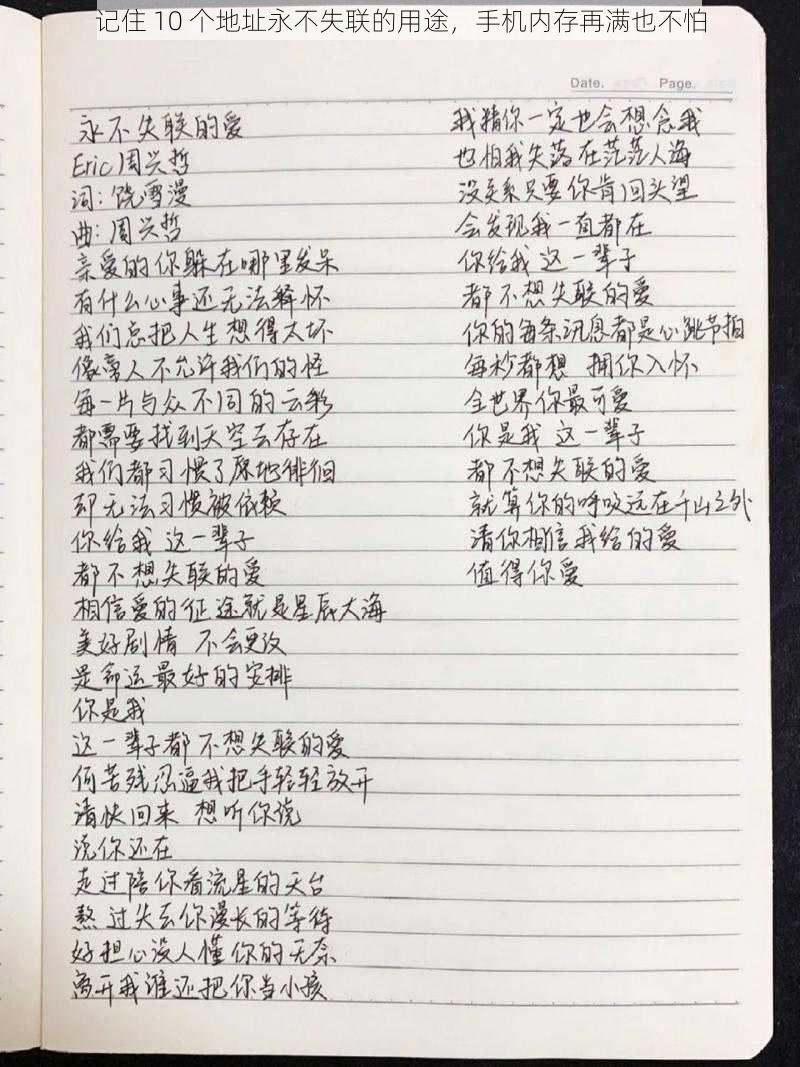 记住 10 个地址永不失联的用途，手机内存再满也不怕
Date. Page.
永不失联的爱
Eric周兴哲
词：饶雪漫
曲：周兴哲
亲爱的你躲在哪里发呆
有什么心事还无法释怀
我们总把人生想得太坏
像旁人不允许我们的怪
每一片与众不同的云彩
都需要找到天空去存在
我们都习惯了原地徘徊
却无法习惯被依赖
你给我 这一辈子
都不想失联的爱
相信爱的征途就是星辰大海
美好剧情 不会更改
是命运最好的安排
你是我
这一辈子都不想失联的爱
何苦残忍逼我把手轻轻放开
请快回来 想听你说
说你还在
走过陪你看流星的天台
熬过失去你漫长的等待
好担心没人懂你的无奈
离开我谁还把你当小孩
我猜你一定也会想念我
也怕我失落在茫茫人海
没关系只要你肯回头望
会发现我一直都在
你给我 这一辈子
都不想失联的爱
你的每条讯息都是心跳节拍
每秒都想 拥你入怀
全世界你最可爱
你是我 这一辈子
都不想失联的爱
就算你的呼吸远在千山之外
请你相信我给的爱
值得你爱